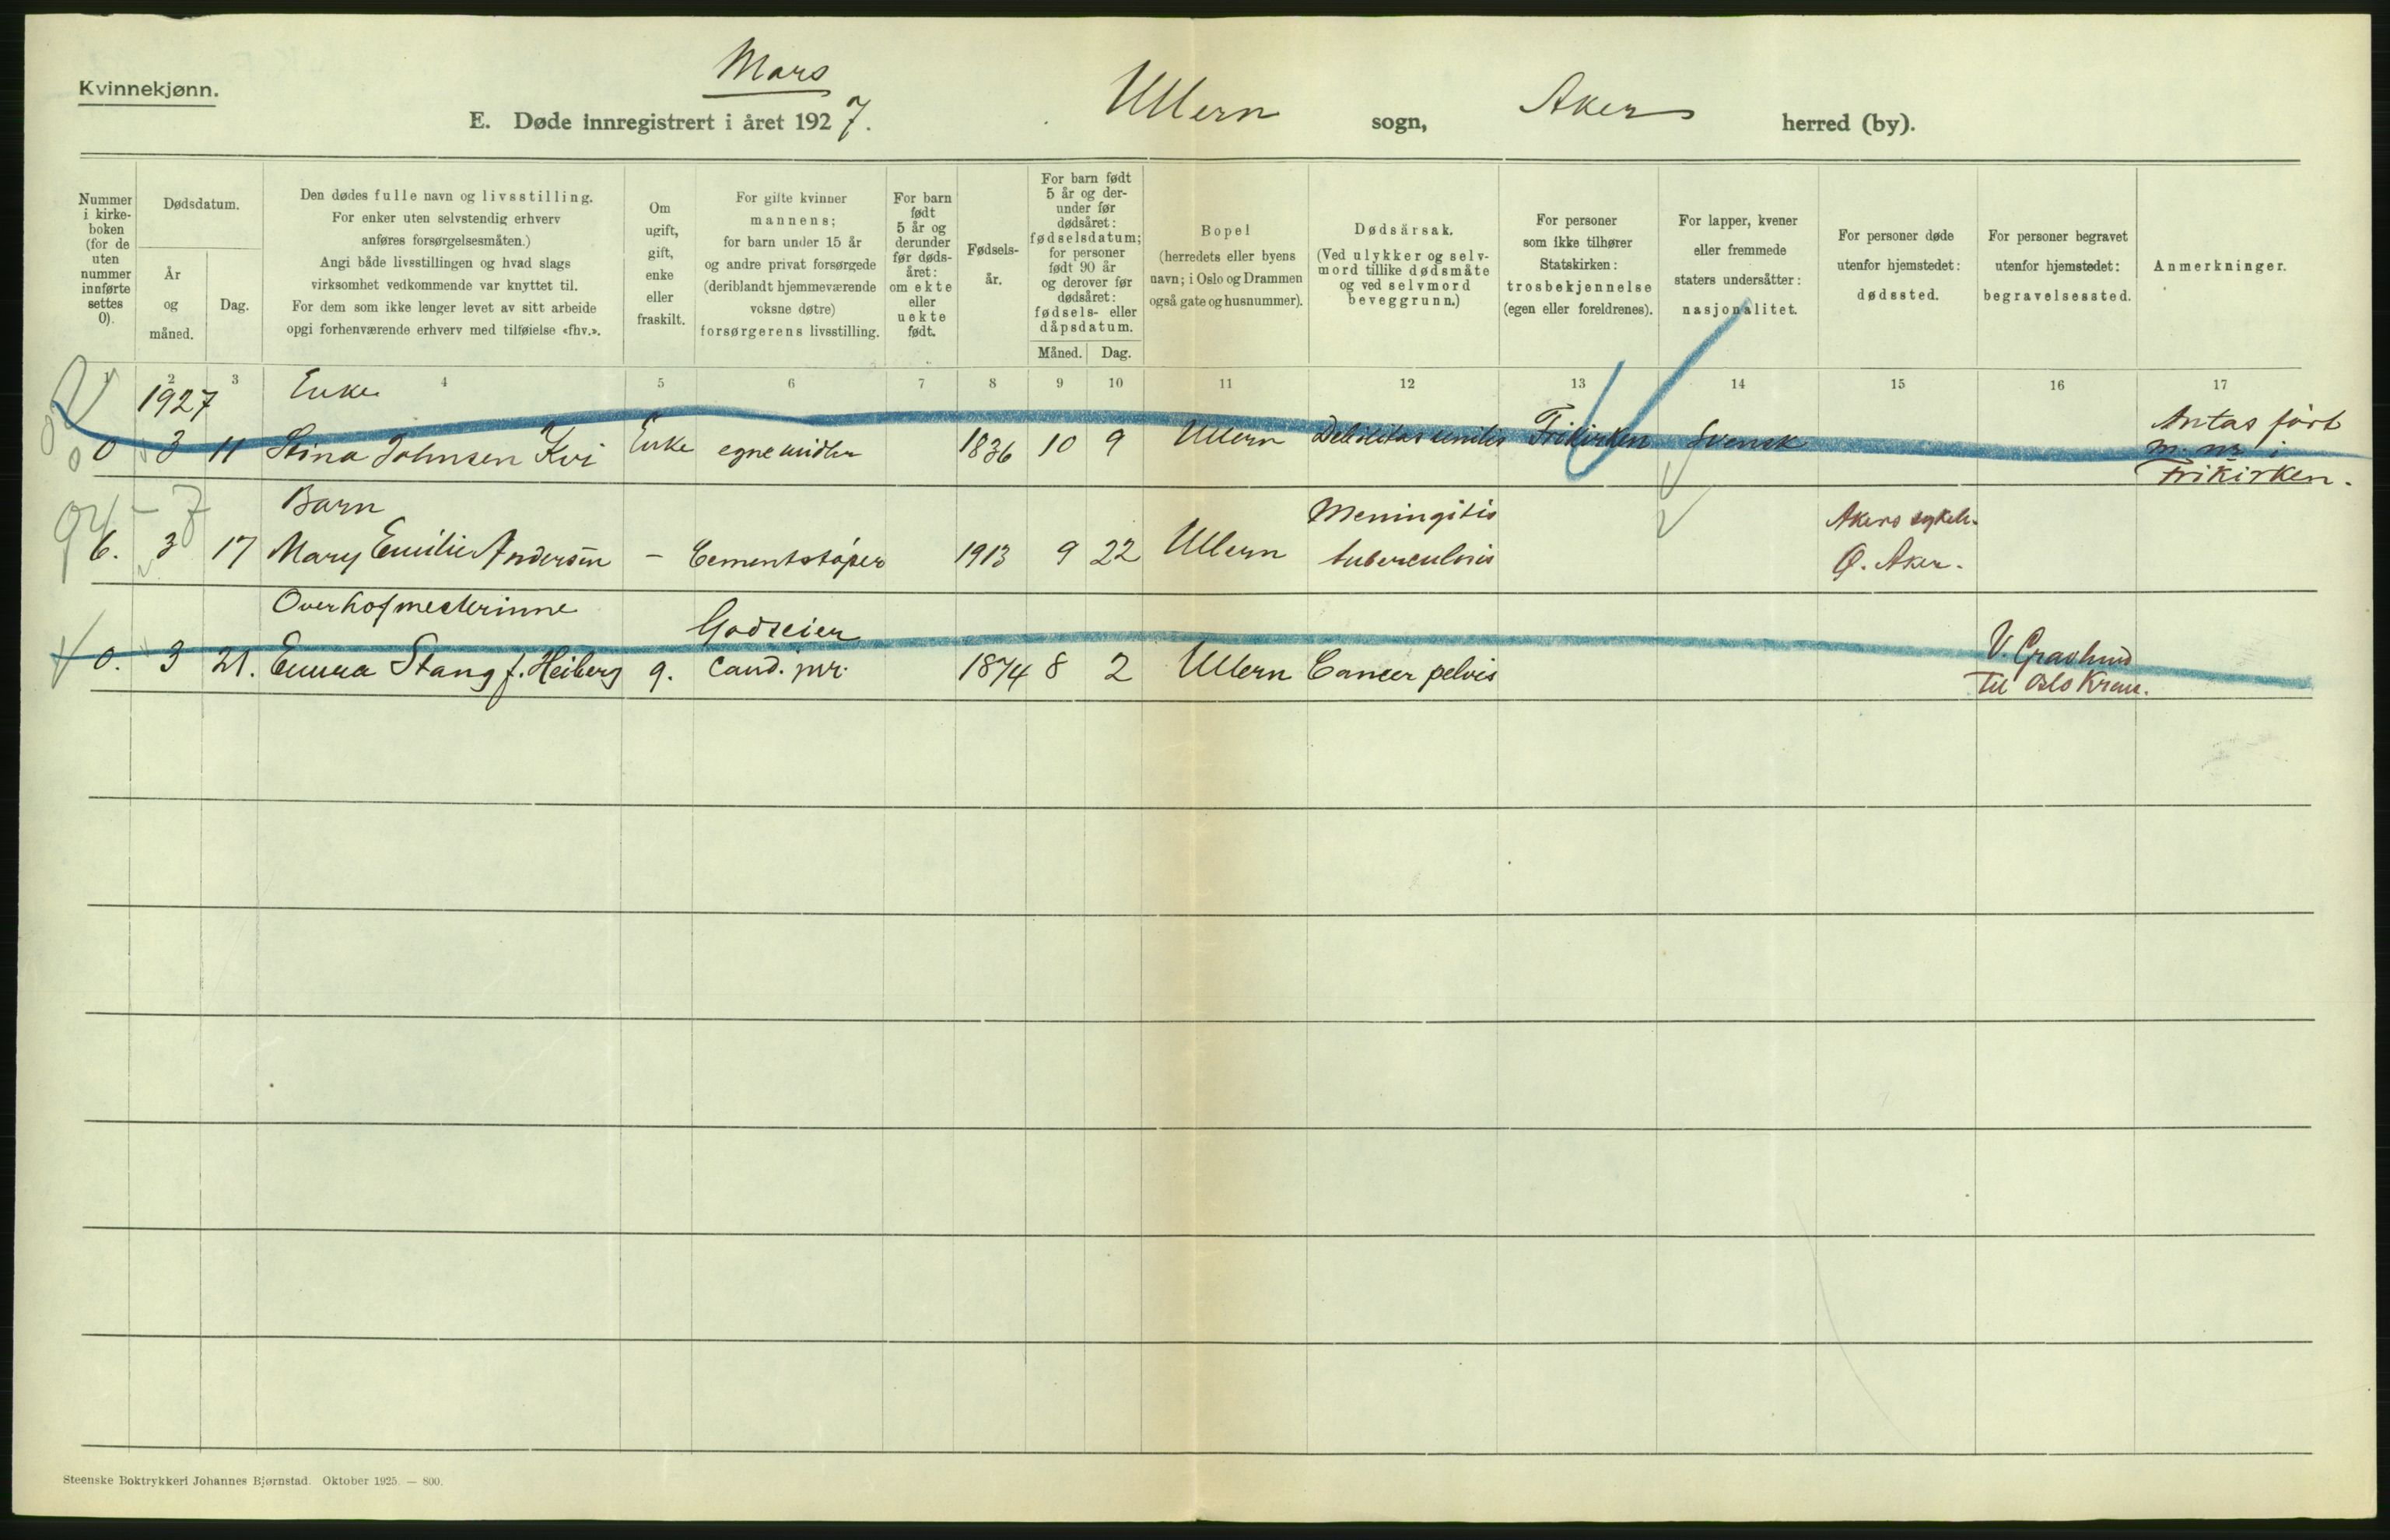 Kvinnekjønn.
Mars
E. Døde innregistrert i året 1927.
Ullern sogn, Aker herred (by).
Nummer i kirke- boken (for de uten nummer innførte settes 0).
Dødsdatum.
År og måned.
Dag.
Den dødes fulle navn og livsstilling.
For enker uten selvstendig erhverv
anføres forsørgelsesmåten.)
Angi både livsstillingen og hvad slags
virksomhet vedkommende var knyttet til.
For dem som ikke lenger levet av sitt arbeide
opgi forhenværende erhverv med tilføielse «fhv.».
Om ugift, gift, enke eller fraskilt.
For gifte kvinner
mannens;
for barn under 15 år
og andre privat forsørgede
(deriblandt hjemmeværende
voksne døtre)
forsørgerens livsstilling.
For barn født 5 år og derunder før døds- året: om ekte eller uekte født.
Fødsels- år.
For barn født 5 år og der- under før dødsåret: fødselsdatum; for personer født 90 år og derover før dødsåret: fødsels- eller dåpsdatum.
Måned. Dag.
Bopel
(herredets eller byens
navn; i Oslo og Drammen
også gate og husnummer).
Dødsårsak.
(Ved ulykker og selv-
mord tillike dødsmåte
og ved selvmord
beveggrunn.)
For personer
som ikke tilhører
Statskirken:
trosbekjennelse
(egen eller foreldrenes).
For lapper, kvener
eller fremmede
staters undersåtter:
nasjonalitet.
For personer døde
utenfor hjemstedet:
dødssted.
For personer begravet
utenfor hjemstedet:
begravelsessted.
Anmerkninger.
1 2 3 4 5 6 7 8 9 10 11 12 13 14 15 16 17
1927 Enke
0 3 11 Stina Johnsen Kvi Enke egne midler 1836 10 9 Ullern Debilitas senilis Frikirken Svensk
Antas ført
m. nr i
Frikirken.
Barn Meningitis Akers sykeh.
6. 3 17 Mary Emilie Andersen – Cementstøper 1913 9 22 Ullern tuberculosis Ø. Aker.
Overhofmesterinne Godseier V. Gravlund
0. 3 21. Emma Stang f. Heiberg g. Cand. jur. 1874 8 2 Ullern Cancer pelvis Til Oslo Krem.
Steenske Boktrykkeri Johannes Bjørnstad. Oktober 1925. — 800.